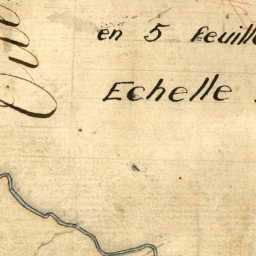 en 5 feuille
Echelle